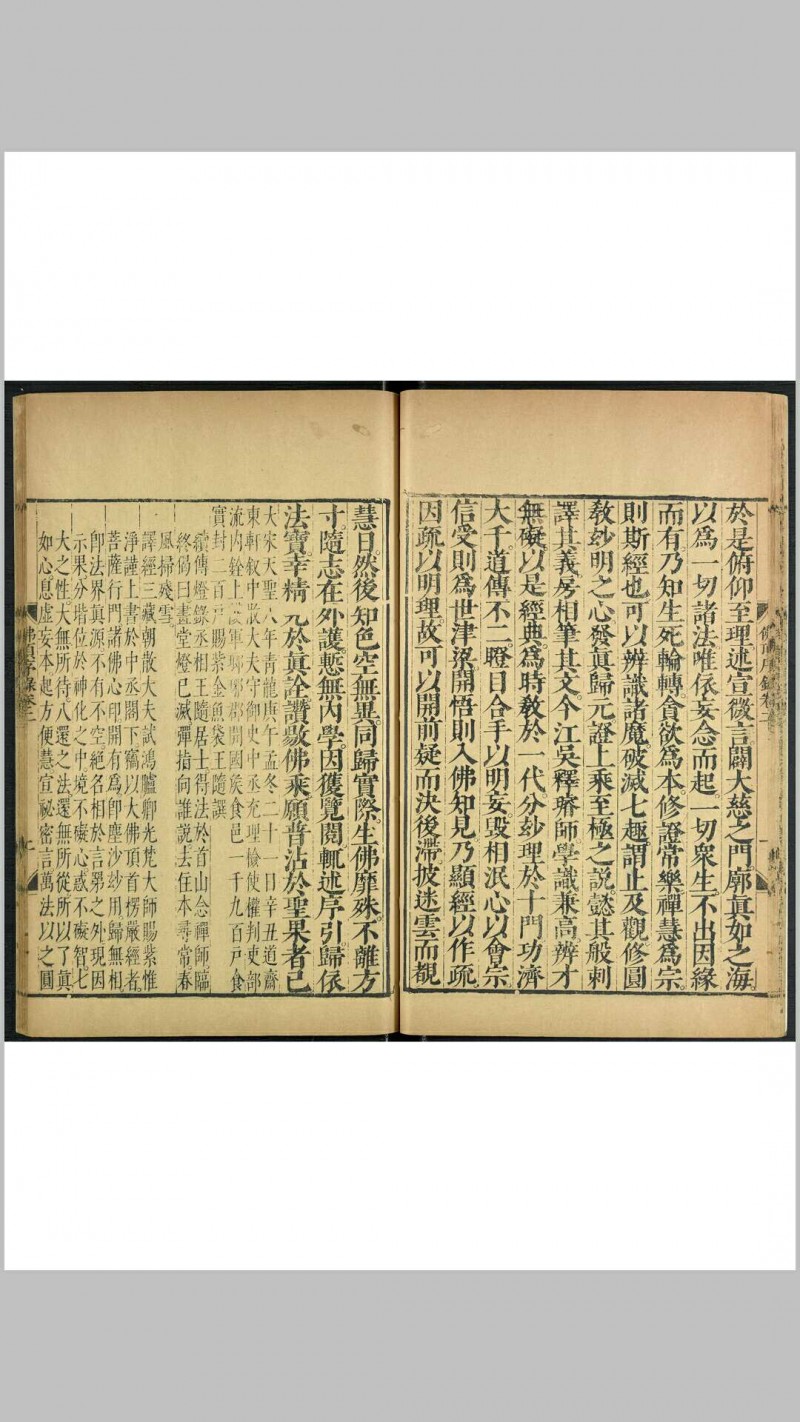 於是俯仰至理述宣微言闢大慈之門廓眞如之海
以爲一切諸法唯依妄念而起一切衆生不出因緣
而有乃知生死輪轉貪欲爲本修證常樂禪慧爲宗
則斯經也可以辨識諸魔破滅七趣謂止及觀修圓
敎玅明之心發眞歸元證上乘至極之説懿其般剌
譯其義房相筆其文今江吳釋璿師學識兼高辨才
無礙以是經典爲時敎於一代分玅理於十門功濟
大千道傳不二瞪目合手以明妄毁相泯心以會宗
信受則爲世津梁開悟則入佛知見乃顯經以作疏
因疏以明理故可以開前疑而決後滯披迷雲而覩
佛頂序錄卷二
慧日然後知色空無異同歸實際生佛靡殊不離方
寸隨志在外護慙無内學因獲覽閲輒述序引歸依
法寶幸精元於眞詮讚敭佛乘願普沾於聖果者已
大宋天聖八年靑龍庚午孟冬二十一日辛丑道齋
東軒叙中散大夫守御史中丞充理檢使權判吏部
流内銓上護軍瑯琊郡開國侯食邑一千九百戸食
實封二百戸賜紫金魚袋王隨譔
續傳燈錄丞相王隨居士得法於首山念禪師臨
終偈曰畫堂燈已滅彈指向誰説去住本尋常春
風掃殘雪
譯經三藏朝散大夫試鴻臚卿光梵大師賜紫惟
淨謹上書於中丞閤下竊以大佛頂首楞嚴經者
菩薩行門諸佛心印開有爲卽塵沙玅用歸無相
卽法界眞源不有不空絕名相於言象之外現因
示果分堦位於神化之中境不礙心惑不礙智七
大之性大無所待八還之法還無所從所以了眞
如心息虛妄本起方便慧宣祕密言萬法以之圓
佛頂序錄卷二